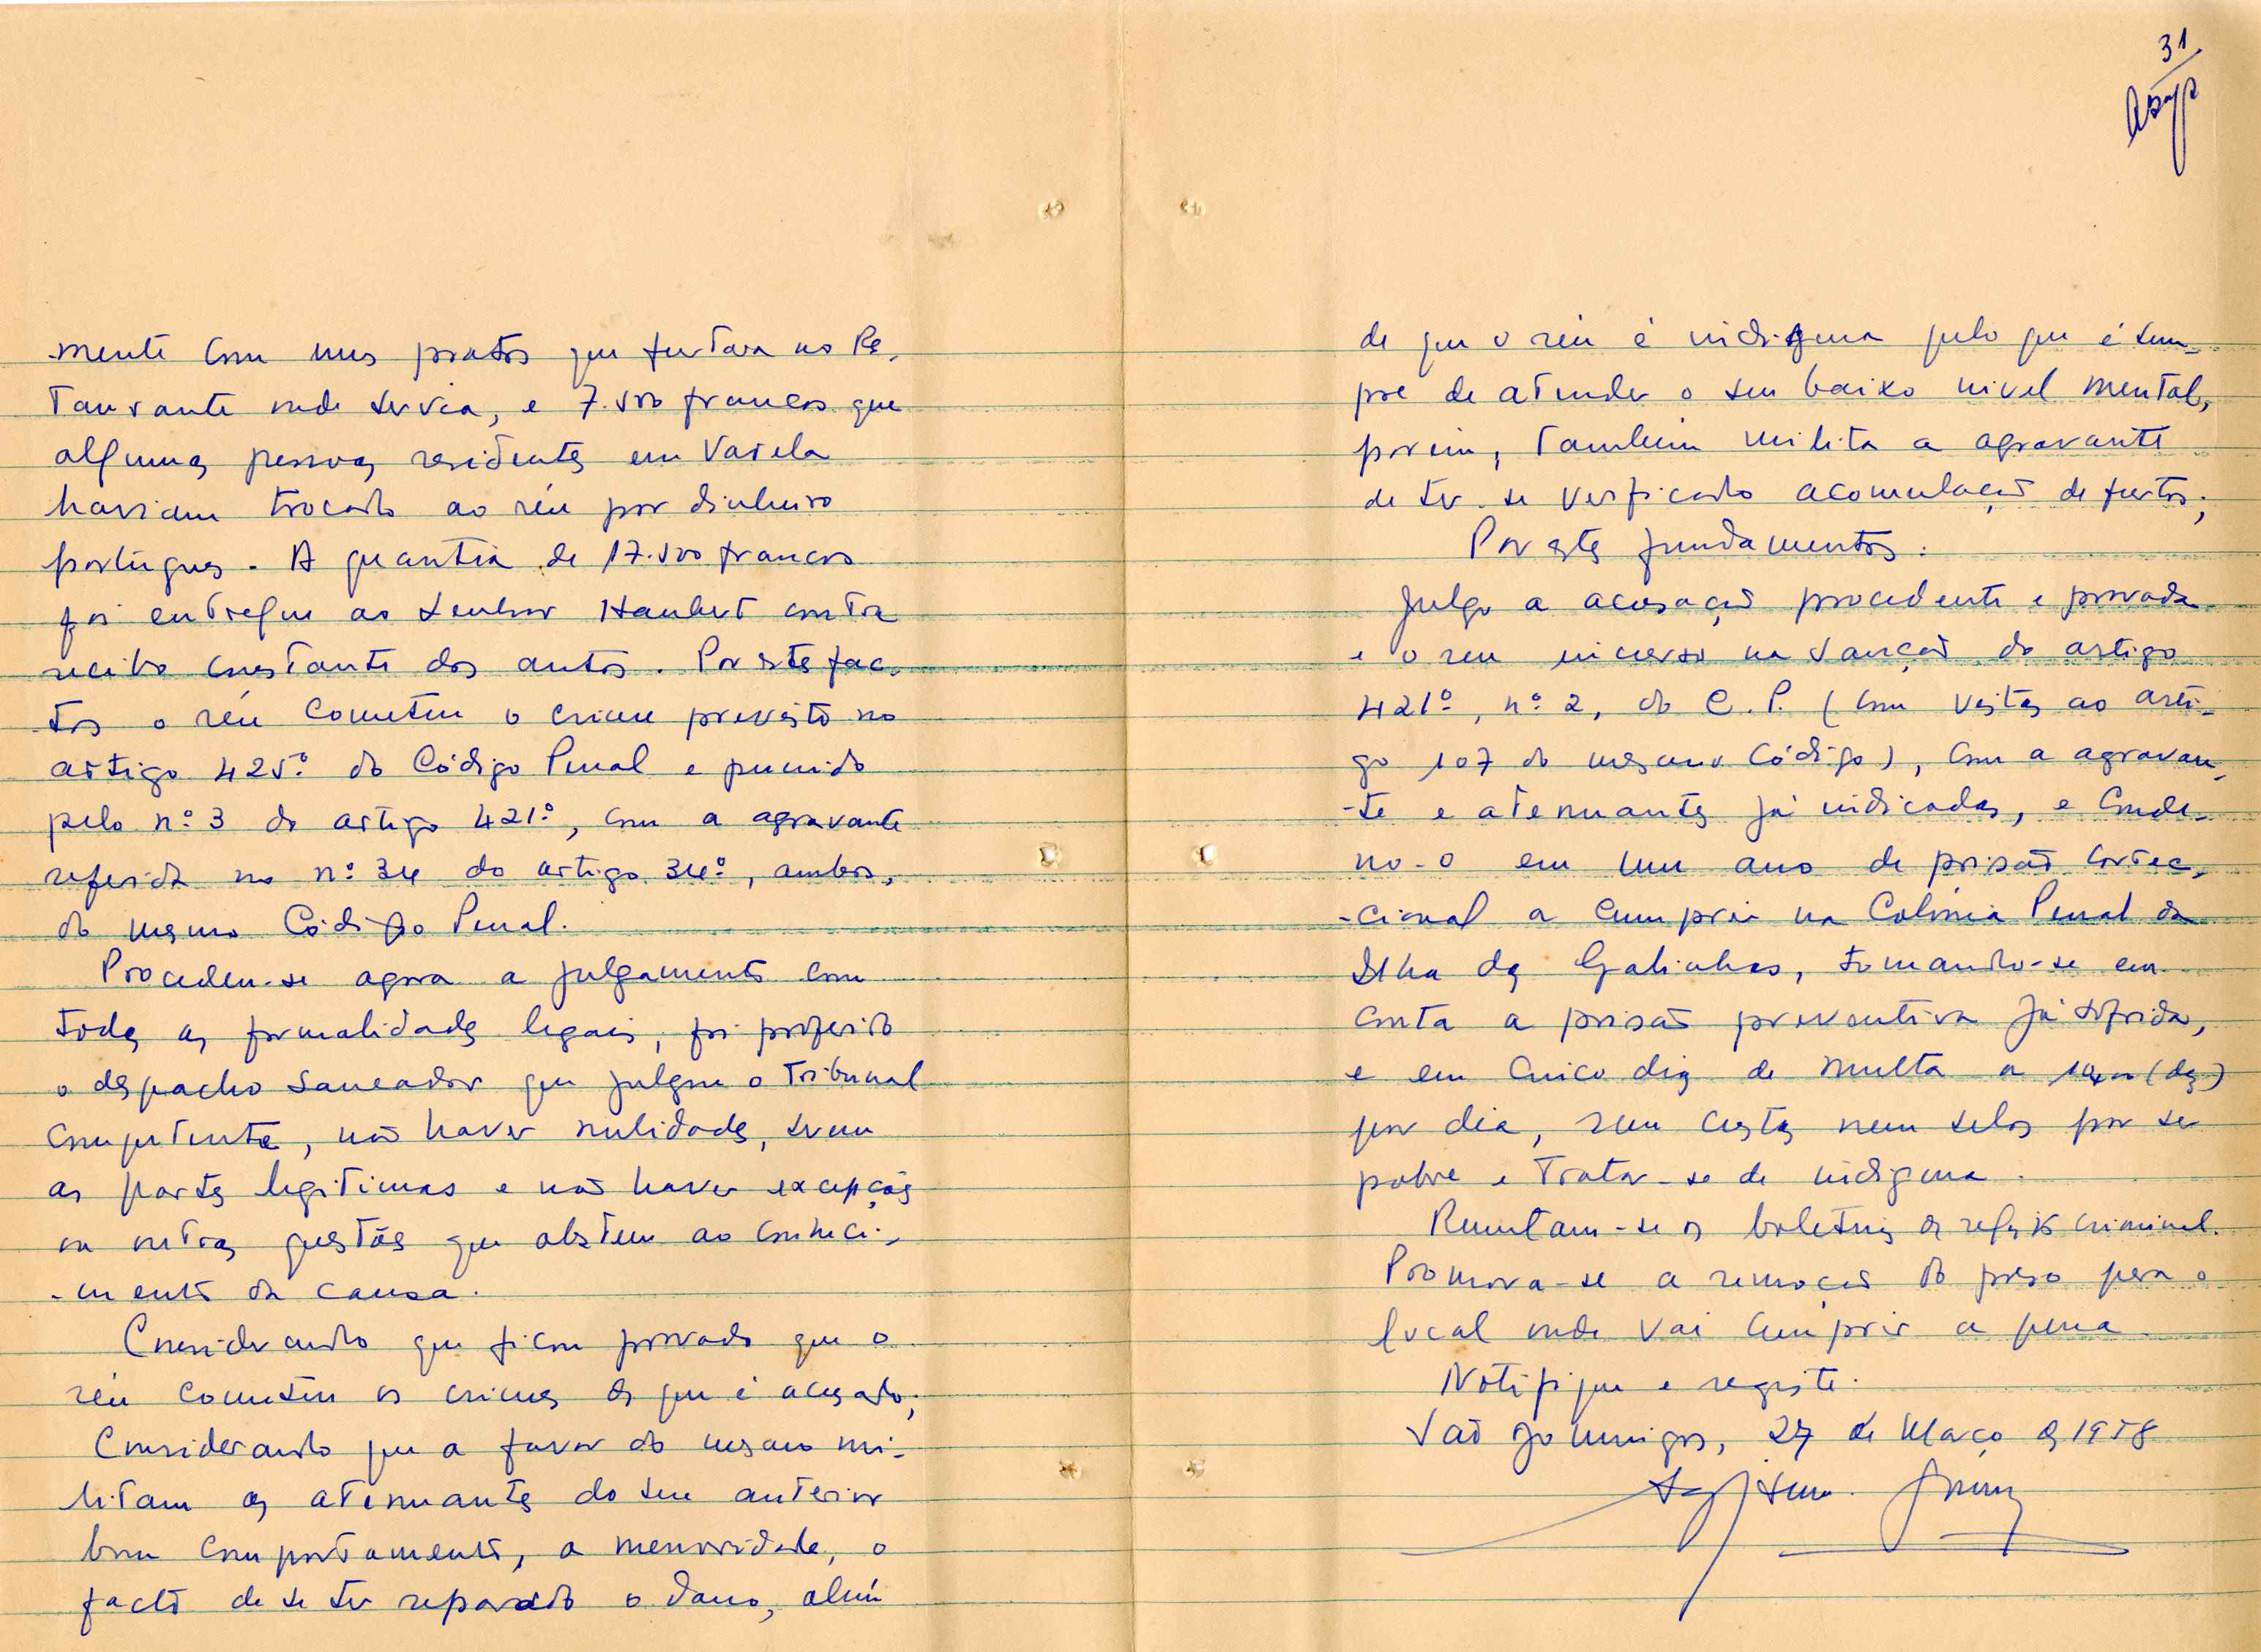 -mente com uns pratos que furtara no Res-
taurante onde servia, e 7.500 francos que
algumas pessoas residentes em Varela
haviam trocado ao réu por dinheiro
português. A quantia de 17.500 francos
foi entregue ao senhor Haubert contra
recibo constante dos autos. Por estes fac-
tos o réu cometeu o crime previsto no
artigo 425.º do Código Penal e punido
pelo n.º 3 do artigo 421.º, com a agravante
referida no n.º 34 do artigo 34.º, ambos,
do mesmo Código Penal.
Procedeu-se agora a julgamento com
todas as formalidades legais, foi proferido
o despacho saneador que julgou o Tribunal
competente, não haver nulidades, serem
as partes legitimas e não haver excepções
ou outras questões que obstem ao conheci-
-mento da causa.
Considerando que ficou provado que o
réu cometeu os crimes de que é acusado;
Considerando que a favor do mesmo mi-
litam as atenuantes do seu anterior
bom comportamento, a menoridade, o
facto de se ter reparado o dano, além
31
de que o réu é indigena pelo que é sem-
pre de atender o seu baixo nivel mental,
porém, também milita a agravante
de ter-se verificado acomulação de furtos;
Por estes fundamentos:
Julgo a acusação procedente e provada
e o reu incurso na sanção do artigo
421.º, n.º 2, do C.P. (com vistas ao arti-
go 107 do mesmo Código), com a agravan-
-te e atenuantes já indicadas, e conde-
no-o em um ano de prisão correc-
-cional a cumprir na Colónia Penal da
Ilha das Galinhas, tomando-se em
conta a prisão preventiva já sofrida,
e em cinco dias de multa a 10$00 (dez)
por dia, sem custas nem selos por ser
pobre e tratar-se de indigena.
Remetam-se os boletins de registo criminal.
Promova-se a remoção do preso para o
local onde vai cumprir a pena
Notifique e registe.
São Domingos, 27 de Março de 1958